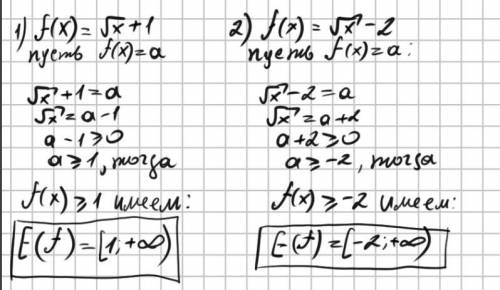 1) f(x) = √x + 1
пусть f(x) = a
√x + 1 = a
√x = a - 1
a - 1 ≥ 0
a ≥ 1, тогда
f(x) ≥ 1 имеем:
E(f) = [1; +∞)
2) f(x) = √x - 2
пусть f(x) = a:
√x - 2 = a
√x = a + 2
a + 2 ≥ 0
a ≥ -2, тогда
f(x) ≥ -2 имеем:
E(f) = [-2; +∞)